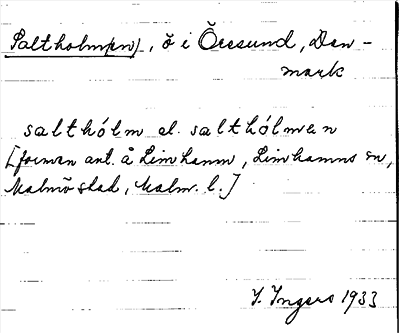 Saltholm(en), ö i Öresund, Dan-
mark
salthólm el. salthólmen
[formen ant. å Limhamn, Limhamns sn,
Malmö stad, Malm. l.]
I. Ingers 1933